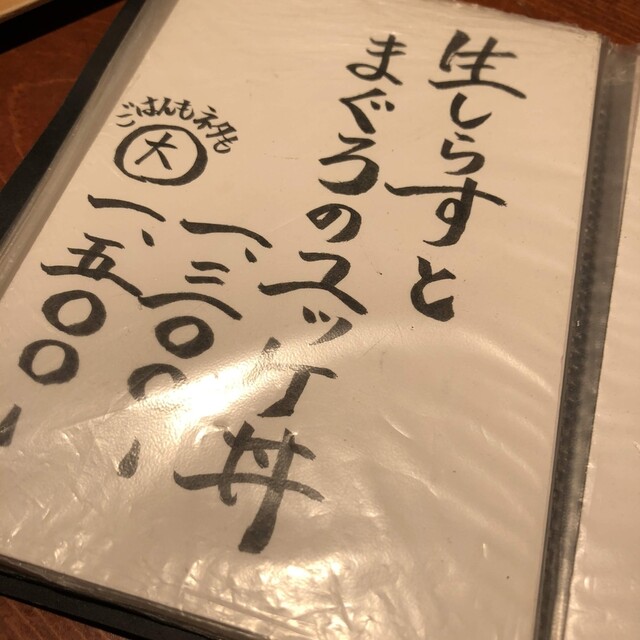 生しらすと
まぐろのユッケ丼
一、三〇〇、
ごはんもネタも
大
一、五〇〇、